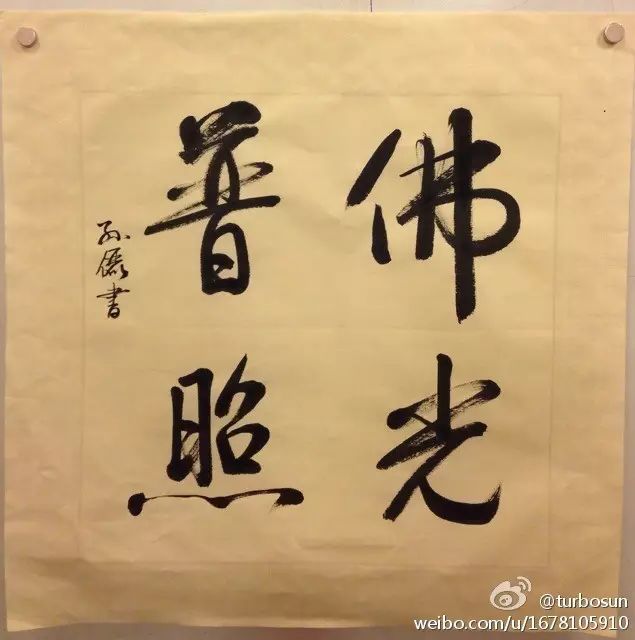 佛光
普照
孙俪书
@turbosun
weibo.com/u/1678105910